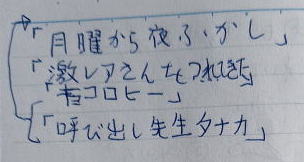 「月曜から夜ふかし」
「激レアさんをつれてきた」
「有コロヒー」
「呼び出し先生タナカ」